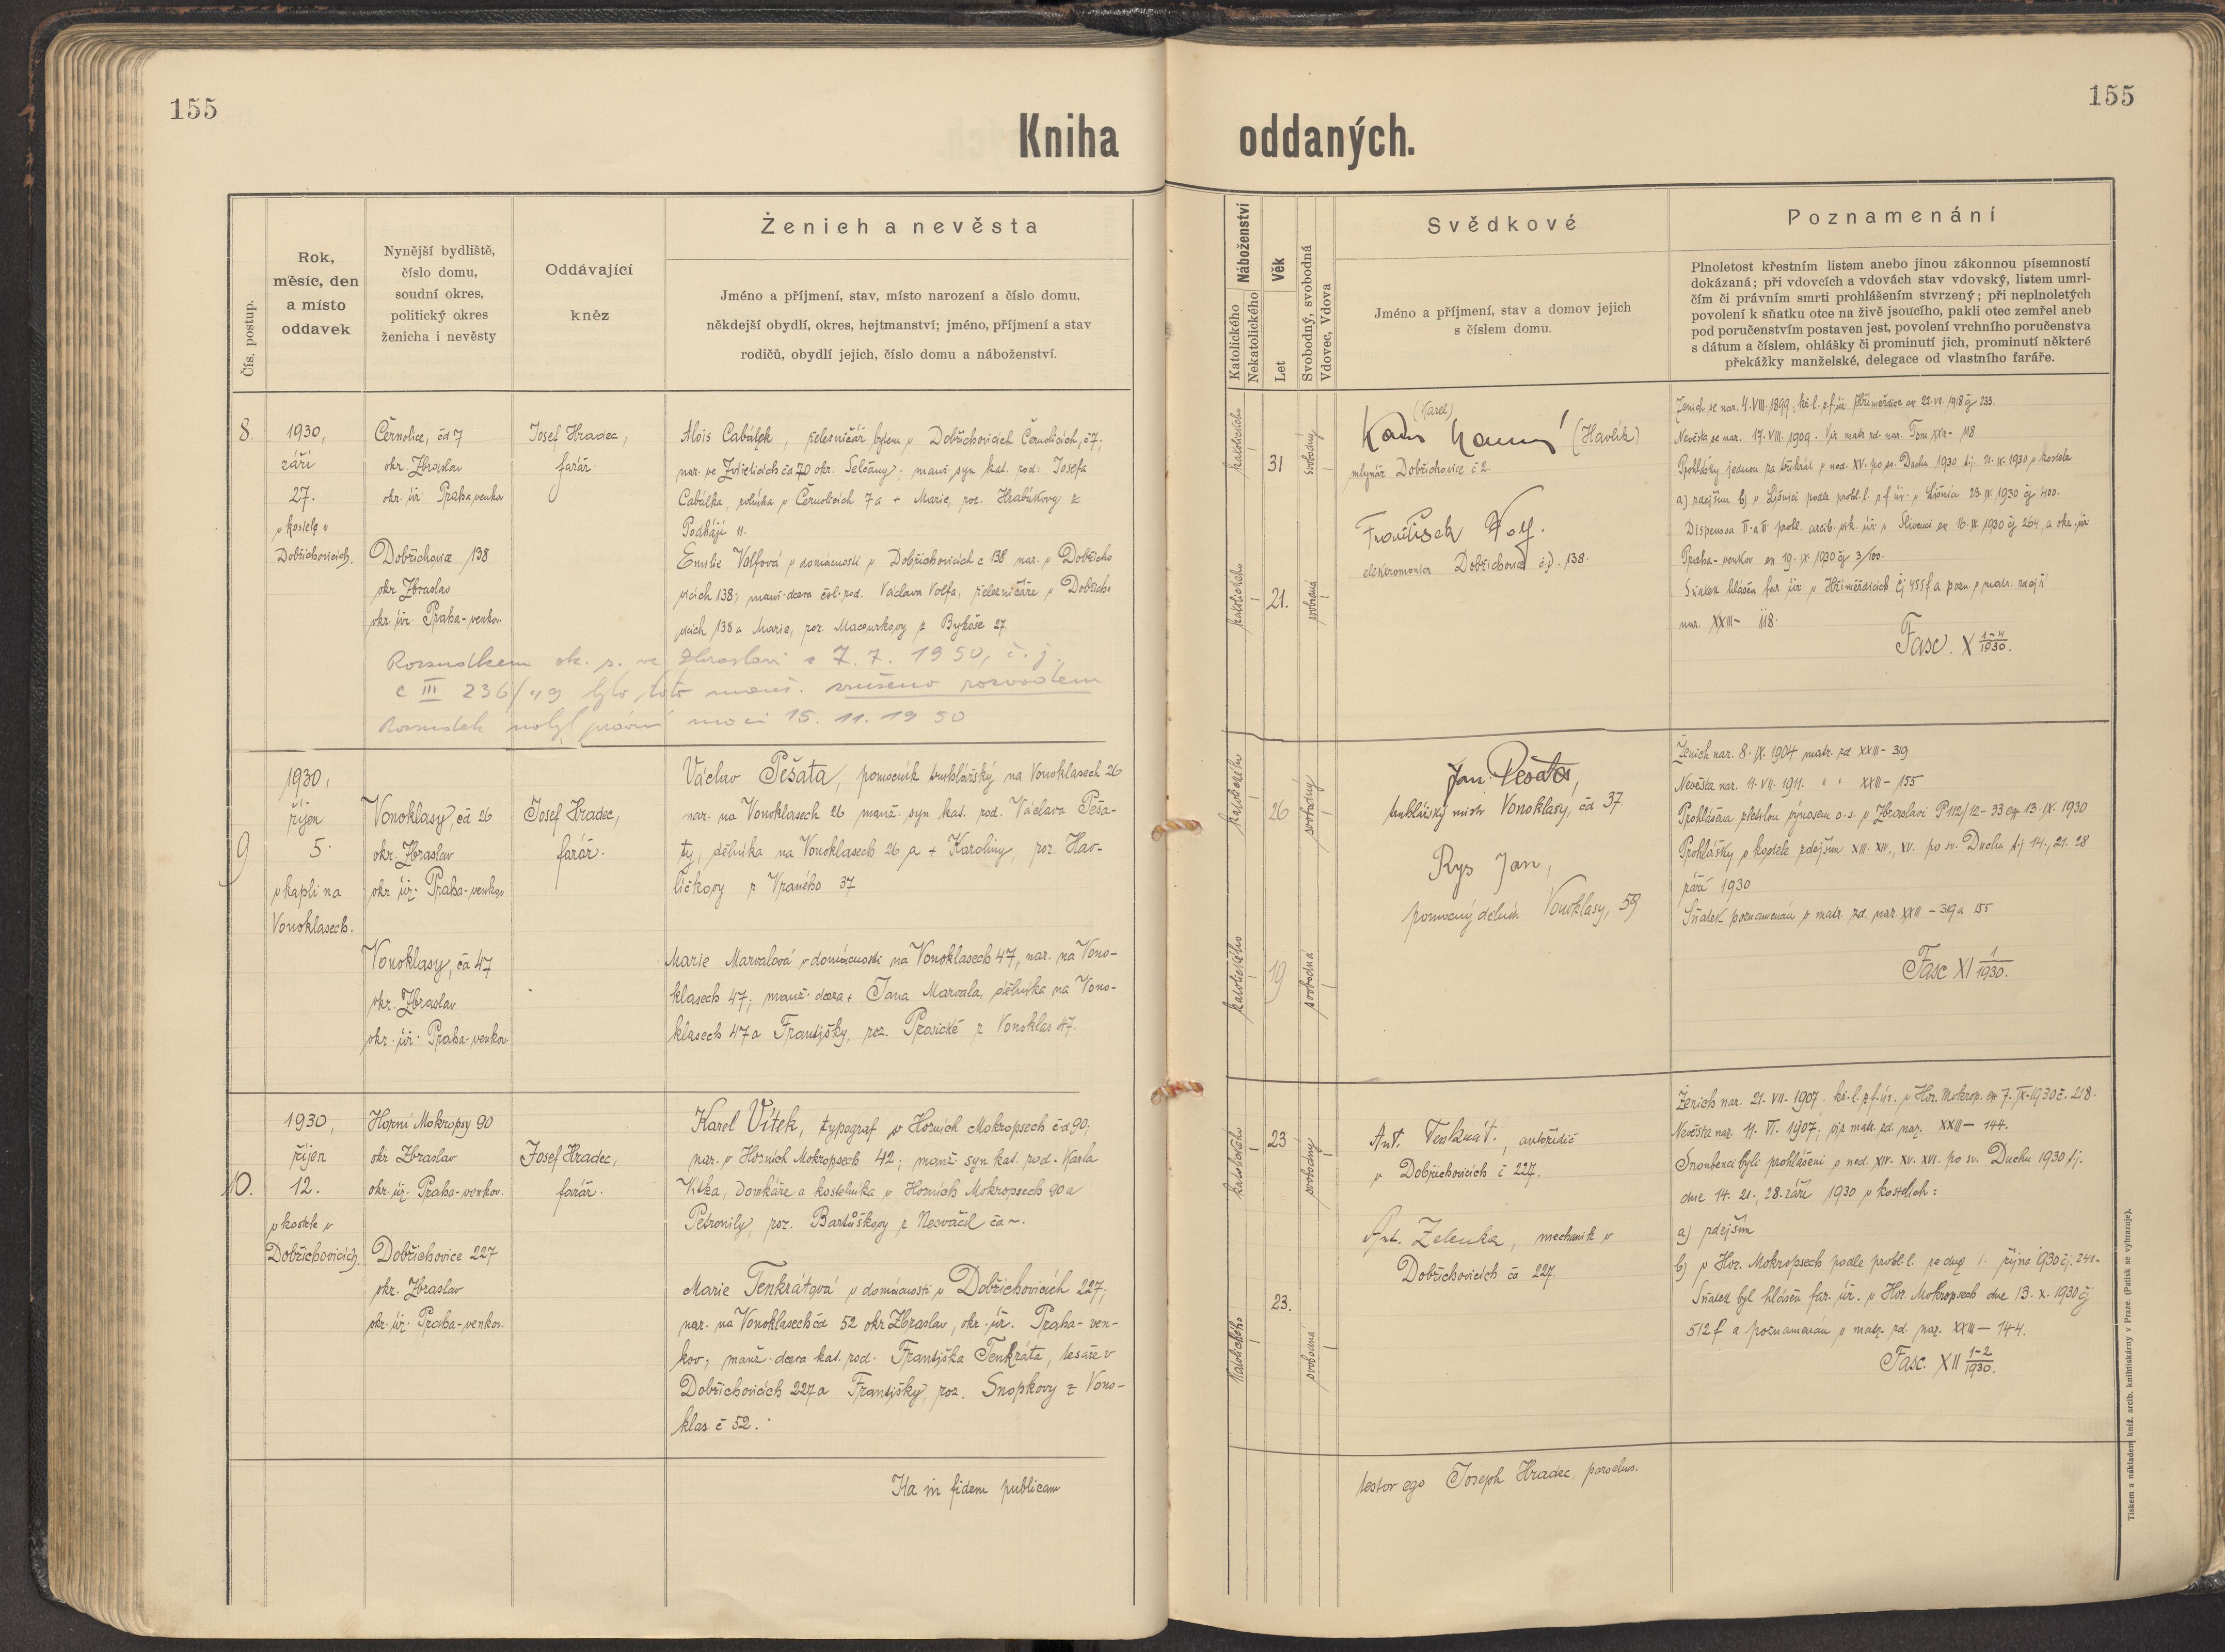 155
155
Kniha oddaných.
Čís. postup.
Rok,
měsíc, den
a místo
oddavek
Nynější bydliště,
číslo domu,
soudní okres,
politický okres
ženicha i nevěsty
Oddávající
kněz
Ženich a nevěsta
Jméno a příjmení, stav, místo narození a číslo domu,
někdejší obydlí, okres, hejtmanství; jméno, příjmení a stav
rodičů, obydlí jejich, číslo domu a náboženství.
Náboženství
Katolického
Nekatolického
Věk
Let
Svobodný, svobodná
Vdovec, Vdova
Svědkové
Jméno a příjmení, stav a domov jejich
s číslem domu.
Poznamenání
Plnoletost křestním listem anebo jinou zákonnou písemností
dokázaná; při vdovcích a vdovách stav vdovský, listem umrl-
čím či právním smrti prohlášením stvrzený; při neplnoletých
povolení k sňatku otce na živě jsoucího, pakli otec zemřel aneb
pod poručenstvím postaven jest, povolení vrchního poručenstva
s dátum a číslem, ohlášky či prominutí jich, prominutí některé
překážky manželské, delegace od vlastního faráře.
8.
1930,
září
27.
v kostele v
Dobřichovicích.
Černolice, čd 7
okr. Zbraslav
okr. úř. Praha venkov
Dobřichovice 138
okr. Zbraslav
okr. úř. Praha-venkov.
Josef Hradec,
farář.
Alois Cabálek, železničář bytem v Dobřichovicích Černolicích, č 7;
nar. ve čd 70 okr. Selčany; manž. syn kat. rod. Josefa
Cabálka, rolníka v Černolicích 7 a + Marie, roz. Hrabákovy z
Podhájí 11.
Emilie Volfová v domácnosti v Dobřichovicích č 138 nar. v Dobřicho
vicích 138; manž. dcera rod. Václava Volfa, železničáře v Dobřicho
vicích 138 a Marie, roz. Macourkovy z Bykoše 27.
Rozsudkem ok. s. ve Zbraslavi z 7. 7. 1950, č. j.
C III 236/49 bylo toto manž. zrušeno rozvodem
Rozsudek nabyl právní moci 15. 11. 1950
katolického
31
svobodný
katolického
21.
svobodná
(Karel)
(Havlík)
mlynář Dobřichovice č 2.
František Volf.
elektromontér Dobřichovice čp. 138.
Ženich se nar. 4. VIII. 1899; kř. l. z f. úř. ex 22. VII. 1918 čj 233.
Nevěsta se nar. 17. VIII. 1909. Viz matr. zd. nar. Tom XXIII - 118
Prohlášky jednou za třikrát v ned. XV. po sv. Duchu 1930 tj. 21. IX. 1930 v kostele
a) zdejším b) v Líšnici podle prohl. l. z f. úř. v Líšnici 23. IX. 1930 čj 400.
Dispensa II. a III. prohl. arcib. vik. úř. v Slivenci ex 16. IX. 1930 čj 264, a okr. úř.
Praha-venkov ex 19. IX. 1930 čj 3/100.
Sňatek hlášen far. úř. v čj 455 f a pozn. v matr. zdejší
nar. XXIII - 118.
Fasc. X 1-4/1930.
9
1930,
říjen
5.
v kapli na
Vonoklasech.
Vonoklasy, čd 26
okr. Zbraslav
okr. úř. Praha-venkov
Vonoklasy, čd 47
okr. Zbraslav
okr. úř. Praha-venkov.
Josef Hradec,
farář.
Václav Pešata, pomocník truhlářský, na Vonoklasech 26
nar. na Vonoklasech 26 manž. syn kat. rod. Václava Peša-
ty, dělníka na Vonoklasech 26 a + Karoliny, roz. Hav-
líčkovy z Vraného 37
Marie Marvalová v domácnosti na Vonoklasech 47, nar. na Vono-
klasech 47; manž. dcera + Jana Marvala, dělníka na Vono-
klasech 47 a Františky, roz. Prosické z Vonoklas 47.
katolického
26
svobodný
katolického
19
svobodná
Jan Pešata,
truhlářský mistr Vonoklasy, čd 37
Rys Jan,
pomocný dělník Vonoklasy, 59
Ženich nar. 8. IX. 1904 matr. zd XXIII - 319
Nevěsta nar. 11. VII. 1911. " " XXIII - 155
Prohlášena zletilou výnosem o. s. v Zbraslavi P 112/12 - 33 ex 13. IX. 1930
Prohlášky v kostele zdejším XIII. XIV., XV. po sv. Duchu tj 14., 21. 28
září 1930
Sňatek poznamenán v matr. zd. nar. XXIII - 319 a 155
Fasc XI 1/1930.
10.
1930,
říjen
12.
v kostele v
Dobřichovicích.
Horní Mokropsy 90
okr. Zbraslav
okr. úř. Praha-venkov.
Dobřichovice 227
okr. Zbraslav
okr. úř. Praha-venkov.
Josef Hradec,
farář.
Karel Vítek, typograf v Horních Mokropsech čd 90;
nar. v Horních Mokropsech 42; manž. syn kat. rod. Karla
Vítka, domkáře a kostelníka v Horních Mokropsech 90 a
Petronily, roz. Bartůškovy z Nesvačil čd ~.
Marie Tenkrátová v domácnosti v Dobřichovicích 227;
nar. na Vonoklasech čd 52 okr Zbraslav, okr. úř. Praha-ven-
kov; manž. dcera kat. rod. Františka Tenkráta, tesaře v
Dobřichovicích 227 a Františky, roz. Snopkovy z Vono-
klas č 52.
katolického
23
svobodný
katolického
23.
svobodná
Ant. Tenkrát, autořidič
v Dobřichovicích č 227.
Ant. Zelenka, mechanik v
Dobřichovicích čd 227.
Ženich nar. 21. VII. 1907. kř. l. z f. úř. v Hor. Mokrop. ex 7. IX. 1930 č. 218.
Nevěsta nar. 11. VI. 1907; viz matr. zd. nar. XXIII - 144.
Snoubenci byli prohlášeni v ned. XIV. XV. XVI. po sv. Duchu 1930 tj.
dne 14. 21., 28. září 1930 v kostelích:
a) zdejším
b) v Hor. Mokropsech podle prohl. l. ze dne 1. října 1930 čj. 241.
Sňatek byl hlášen far. úř. v Hor. Mokropsech dne 13. X. 1930 čj
512 f a poznamenán v matr. zd. nar. XXIII - 144.
Fasc. XII 1-2/1930.
Ita in fidem publicam
testor ego Joseph Hradec, parochus.
Tiskem a nákladem kníž. arcib. knihtiskárny v Praze. (Patisk se vyhrazuje).